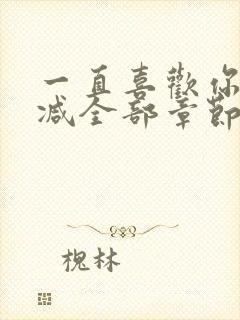 一直喜歡你
减全部章節
槐林